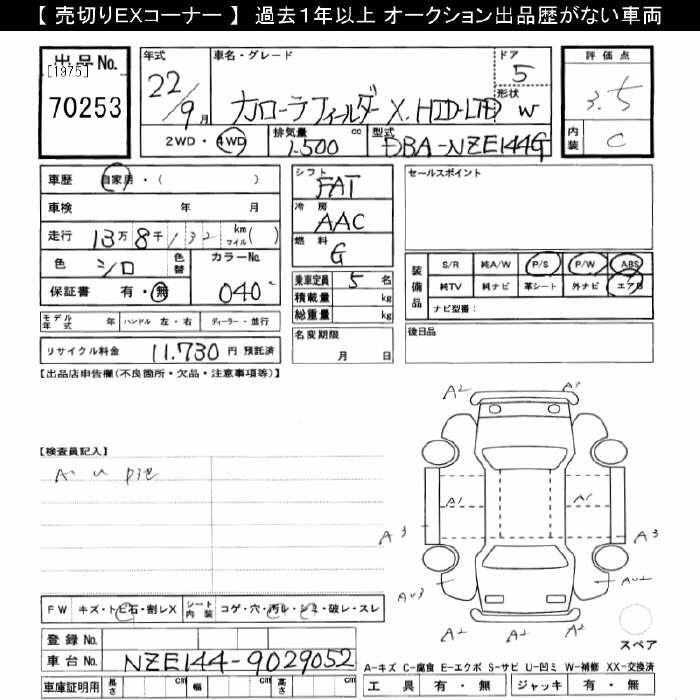 【 売切りEXコーナー 】 過去１年以上 オークション出品歴がない車両
出品No.
[1975]
70253
年式 22/9月
車名・グレード カローラフィールダー X. HID-LTD
ドア 5
形状 W
2WD・4WD
排気量 1500 cc
型式 DBA-NZE144G
評価点 3.5
内装 C
車歴 自家用・( )
車検 年 月
走行 13万8千132 km マイル( )
色 シロ 色替 カラーNo. 040
保証書 有・無
モデル年式 年 ハンドル 左・右 ディーラー・並行
リサイクル料金 11.730 円 預託済
シフト FAT
冷房 AAC
燃料 G
乗車定員 5 名
積載量 kg
総重量 kg
名変期限 月 日
セールスポイント
装備品
S/R 純A/W P/S P/W ABS
純TV 純ナビ 革シート 外ナビ エアB
ナビ型番:
後日品
【出品店申告欄(不良箇所・欠品・注意事項等)】
【検査員記入】
A2 A1
A1 A1
A3 A3
AU3 AU2
A2 A2 A2
FW キズ・トビ石・割レX シート内装 コゲ・穴・汚レ・シミ・破レ・スレ
スペア
登録No.
車台No. NZE144-9029052
A-キズ C-腐食 E-エクボ S-サビ U-凹ミ W-補修 XX-交換済
車庫証明用 長さ cm 幅 cm 高さ cm
工具 有・無 ジャッキ 有・無